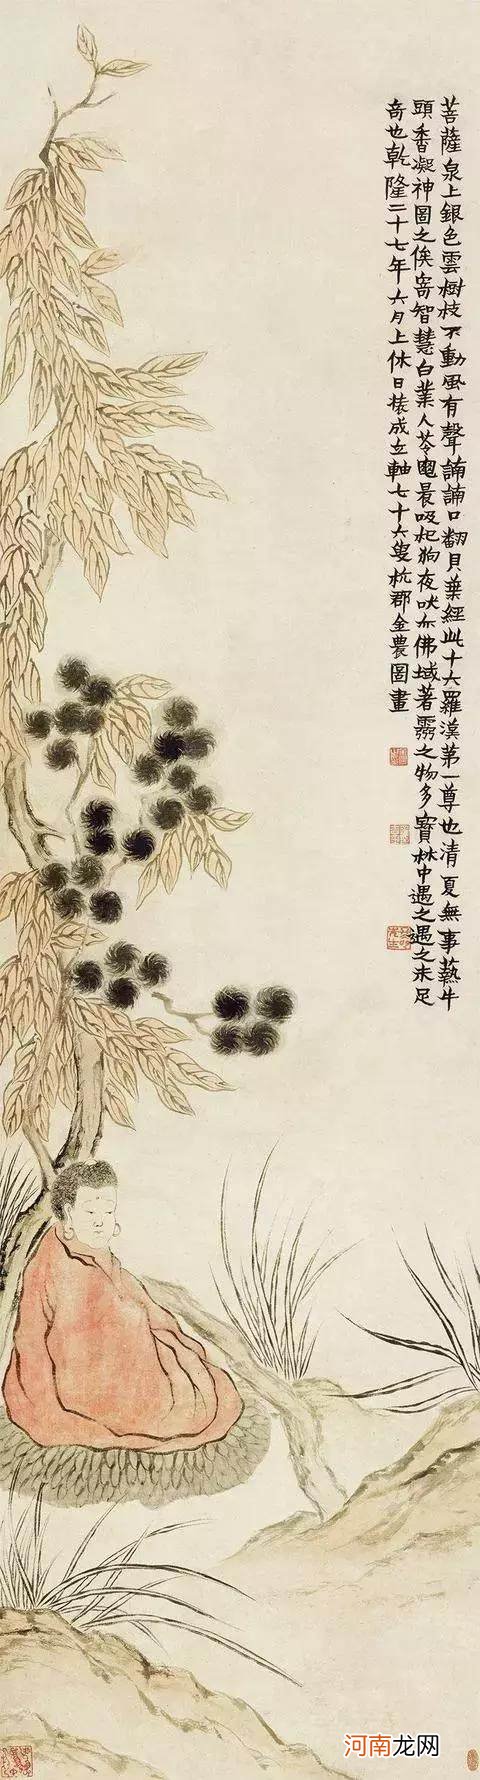 菩薩泉上銀色雲樹枝不動風有聲誦誦口翻貝葉經此十六羅漢第一尊也清夏無事爇牛
頭香凝神圖之俟寄智慧白業人苓龜晨吸杞狗夜吠亦佛域著靈之物多寶林中遇之遇之未足
奇也乾隆二十七年六月上休日裝成立軸七十六叟杭郡金農圖畫
河南龙网